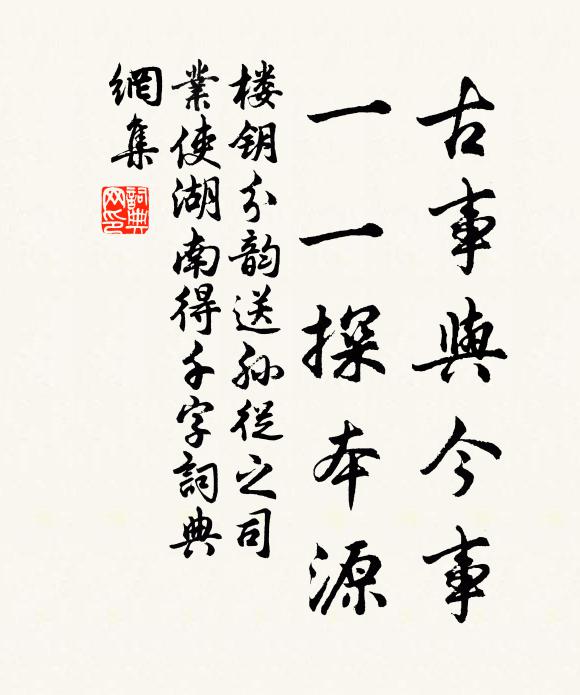 古事與今事
一一探本源
楼钥分韵送孙從之司
業使湖南得千字詞典
網集
詞典
网印